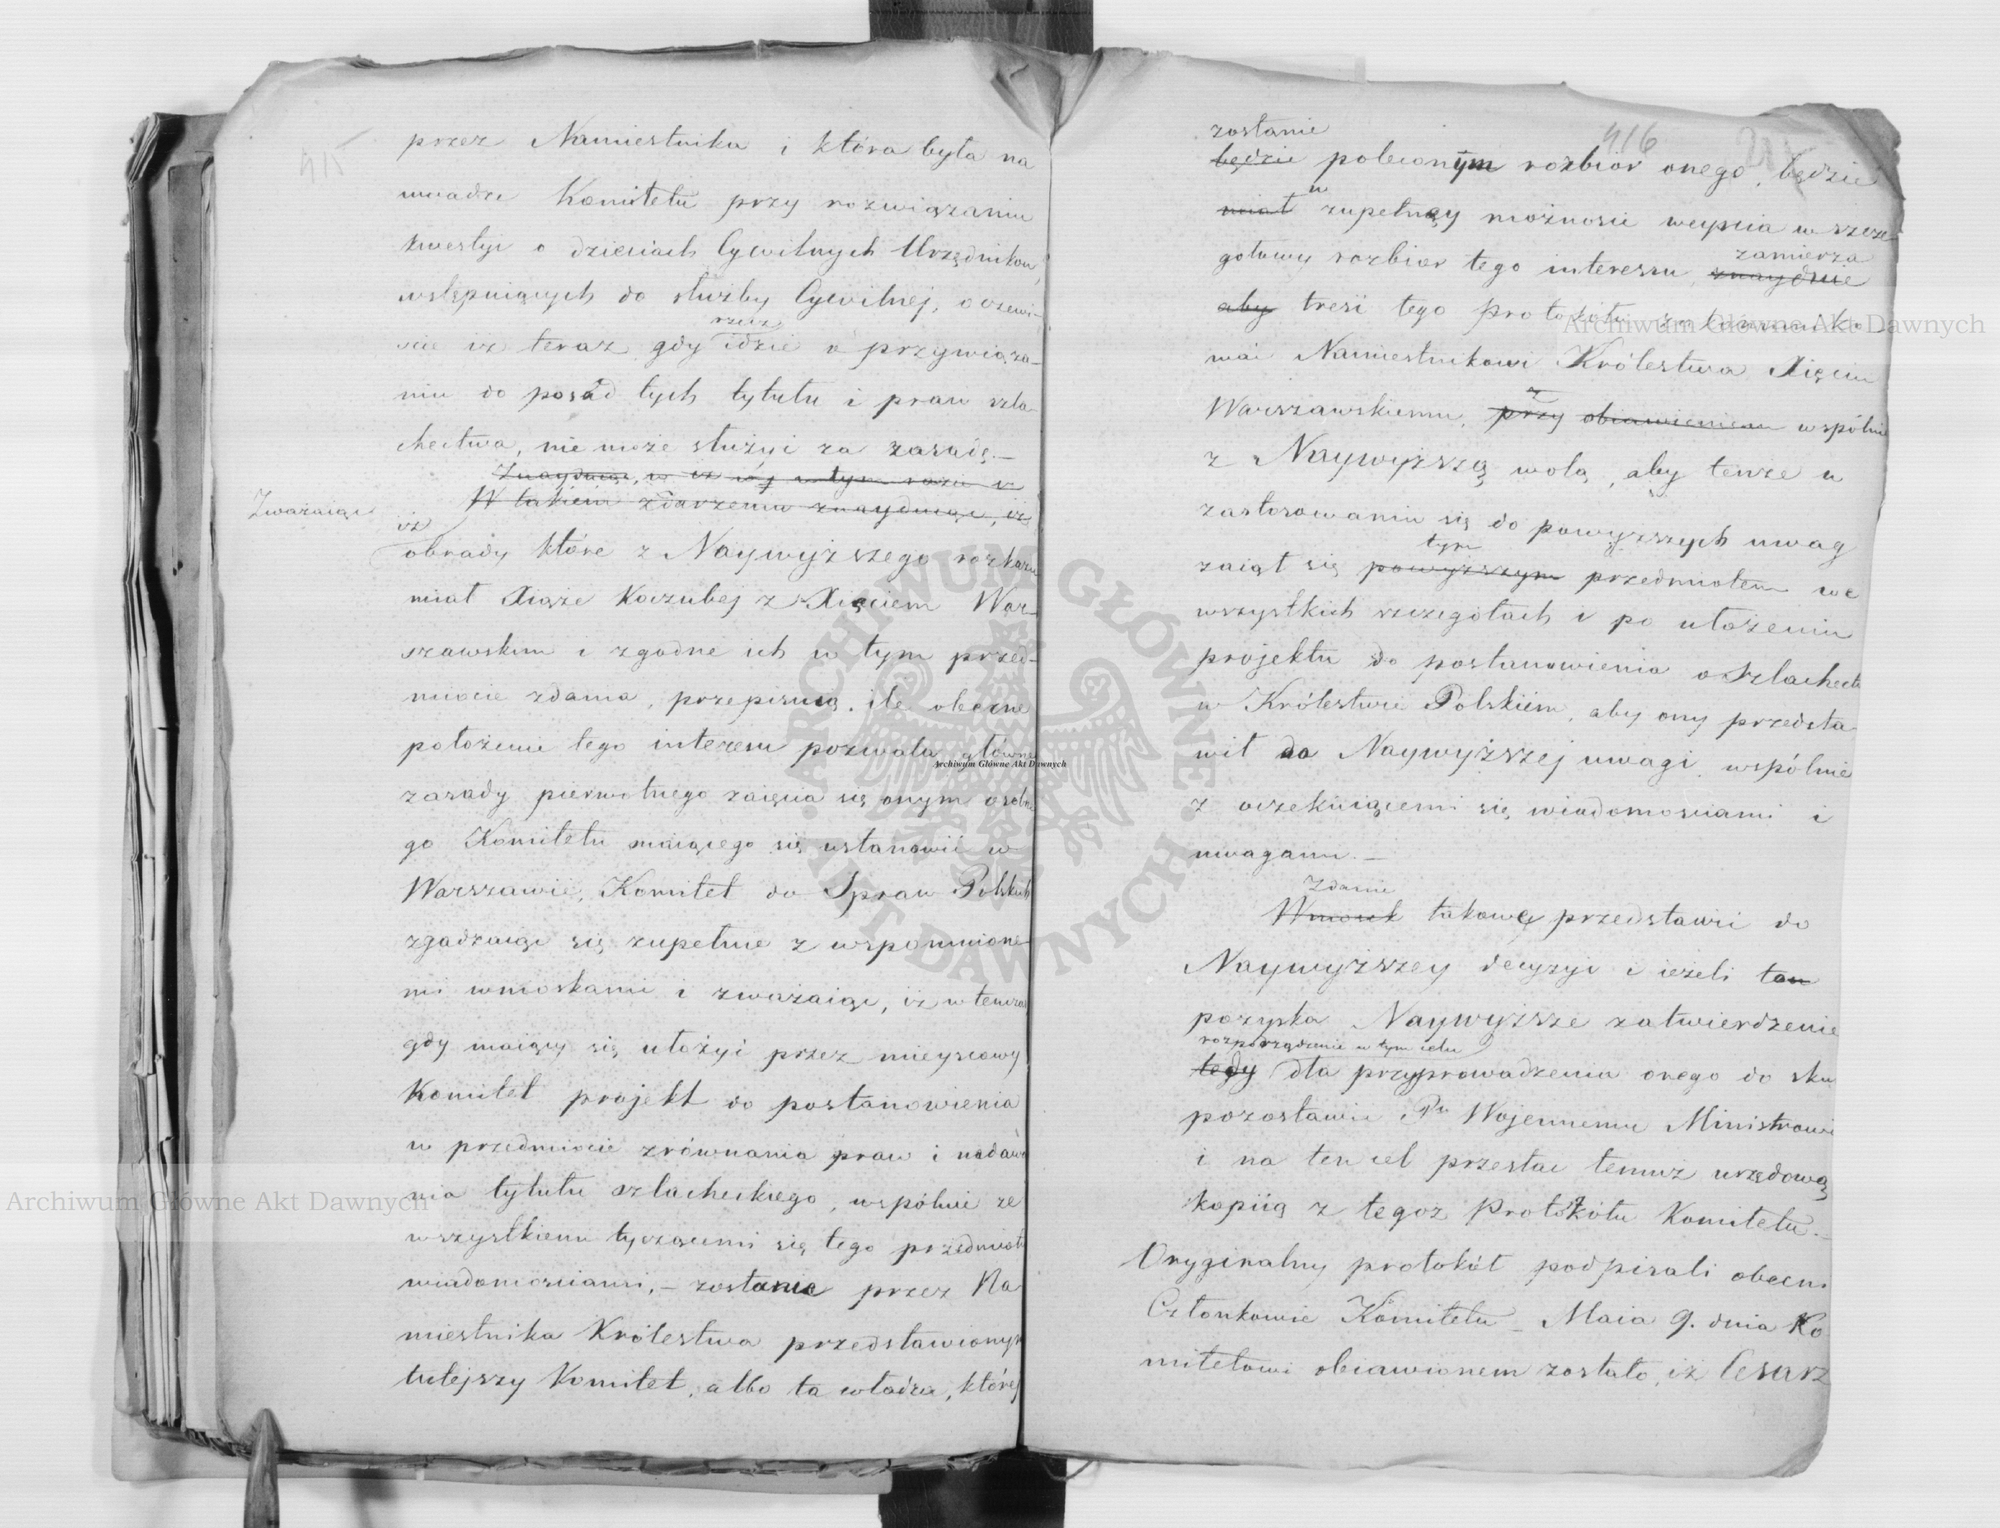 915
przez Namiestnika i która była na
uwadze Komitetu przy rozwiązaniu
kwestyi o dzieciach Cywilnych Urzędników,
wstępuiących do służby Cywilnej, oczewi-
ście iż teraz gdy rzecz idzie o przywiąza-
niu do posad tych tytułu i praw szla-
chectwa, nie może służyć za zasadę.—
Znayduiąc, w
W takiem zdarzeniu znayduiąc, iż
Zważaiąc
iż
obrady które z Naywyższego rozkazu
miał Xiąże Koczubej z Xięciem War-
szawskim i zgodne ich w tym przed-
miocie zdania, przepisuią, ile obecne
położenie tego interesu pozwala, główne
zasady pierwotnego zaięcia się onym osobne
go Komitetu maiącego się ustanowić w
Warszawie, Komitet do Spraw Polskich
zgadzaiąc się zupełnie z wspomnione-
mi wnioskami i zważaiąc, iż wtenczas
gdy maiący się ułożyć przez mieyscowy
Komitet projekt do postanowienia
w przedmiocie zrównania praw i nadawa
nia tytułu szlacheckiego, wspólnie ze
wszystkiemi tyczącemi się tego przedmiotu
wiadomościami,— zostanie przez Na
miestnika Królestwa przedstawionym
tutejszy Komitet, albo ta władza, której
916
zostanie
będzie poleconym rozbior onego, będzie
miał w zupełney możności weyścia w szcze
gołowy rozbior tego interessu, zamierza
znayduie
aby treść tego protokółu zakommuniko-
wać Namiestnikowi Królestwa Xięciu
Warszawskiemu, przy obiawieniem wspólnie
z Naywyższą wolą, aby tenże w
zastosowaniu się do powyższych uwag
zaiął się powyższym tym przedmiotem we
wszystkich szczegołach i po ułożeniu
projektu do postanowienia o Szlachect
w Królestwie Polskiém, aby ony przedsta
wił do Naywyższej uwagi, wspólnie
z oczekuiącemi się wiadomościami i
uwagami.—
Zdanie
Wniosek takowe przedstawić do
Naywyższey decyzyi i ieżeli tam
pozyska Naywyższe zatwierdzenie
rozporządzenie w tym celu
tedy dla przyprowadzenia onego do sku
pozostawić Pu Wojennemu Ministrowi
i na ten cel przesłać temuż urzędową
kopiią z tegoż Protokółu Komitetu.—
Oryginalny protokół podpisali obecni
Członkowie Komitetu — Maia 9. dnia Ko
mitetowi obiawionem zostało, iż Cesarz
Archiwum Główne Akt Dawnych
Archiwum Główne Akt Dawnych
Archiwum Główne Akt Dawnych
ARCHIWUM GŁÓWNE AKT DAWNYCH